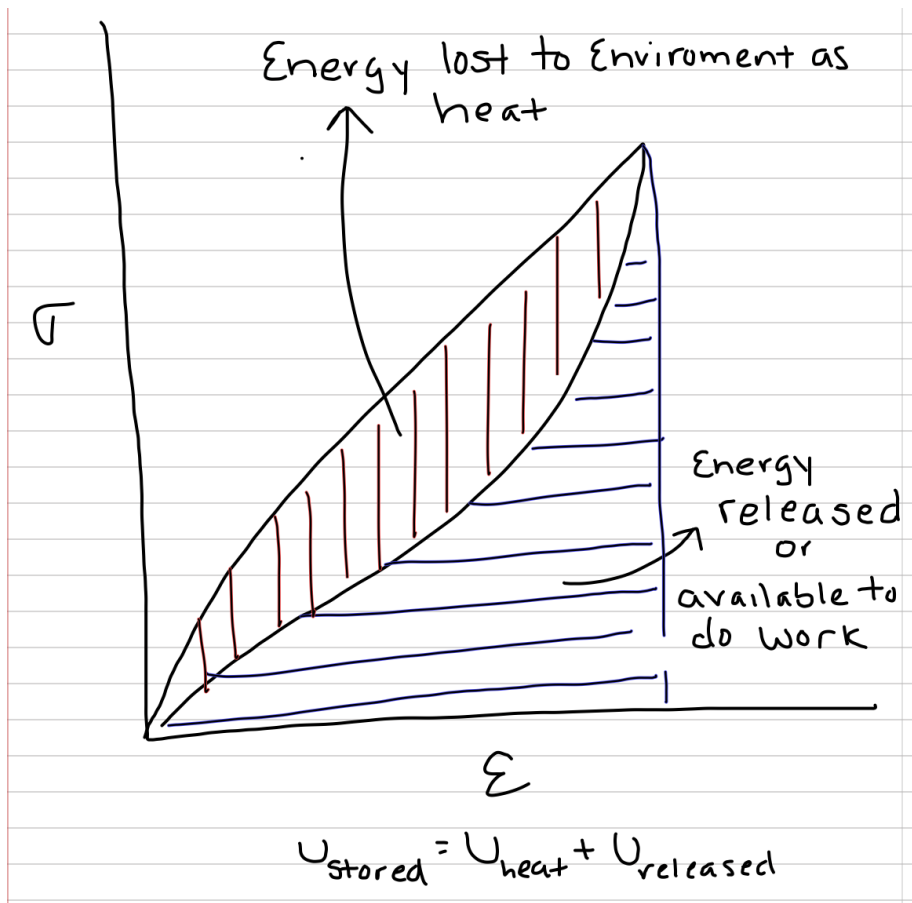 Energy lost to Enviroment as
heat
σ
Energy
released
or
available to
do work
ε
U stored = U heat + U released